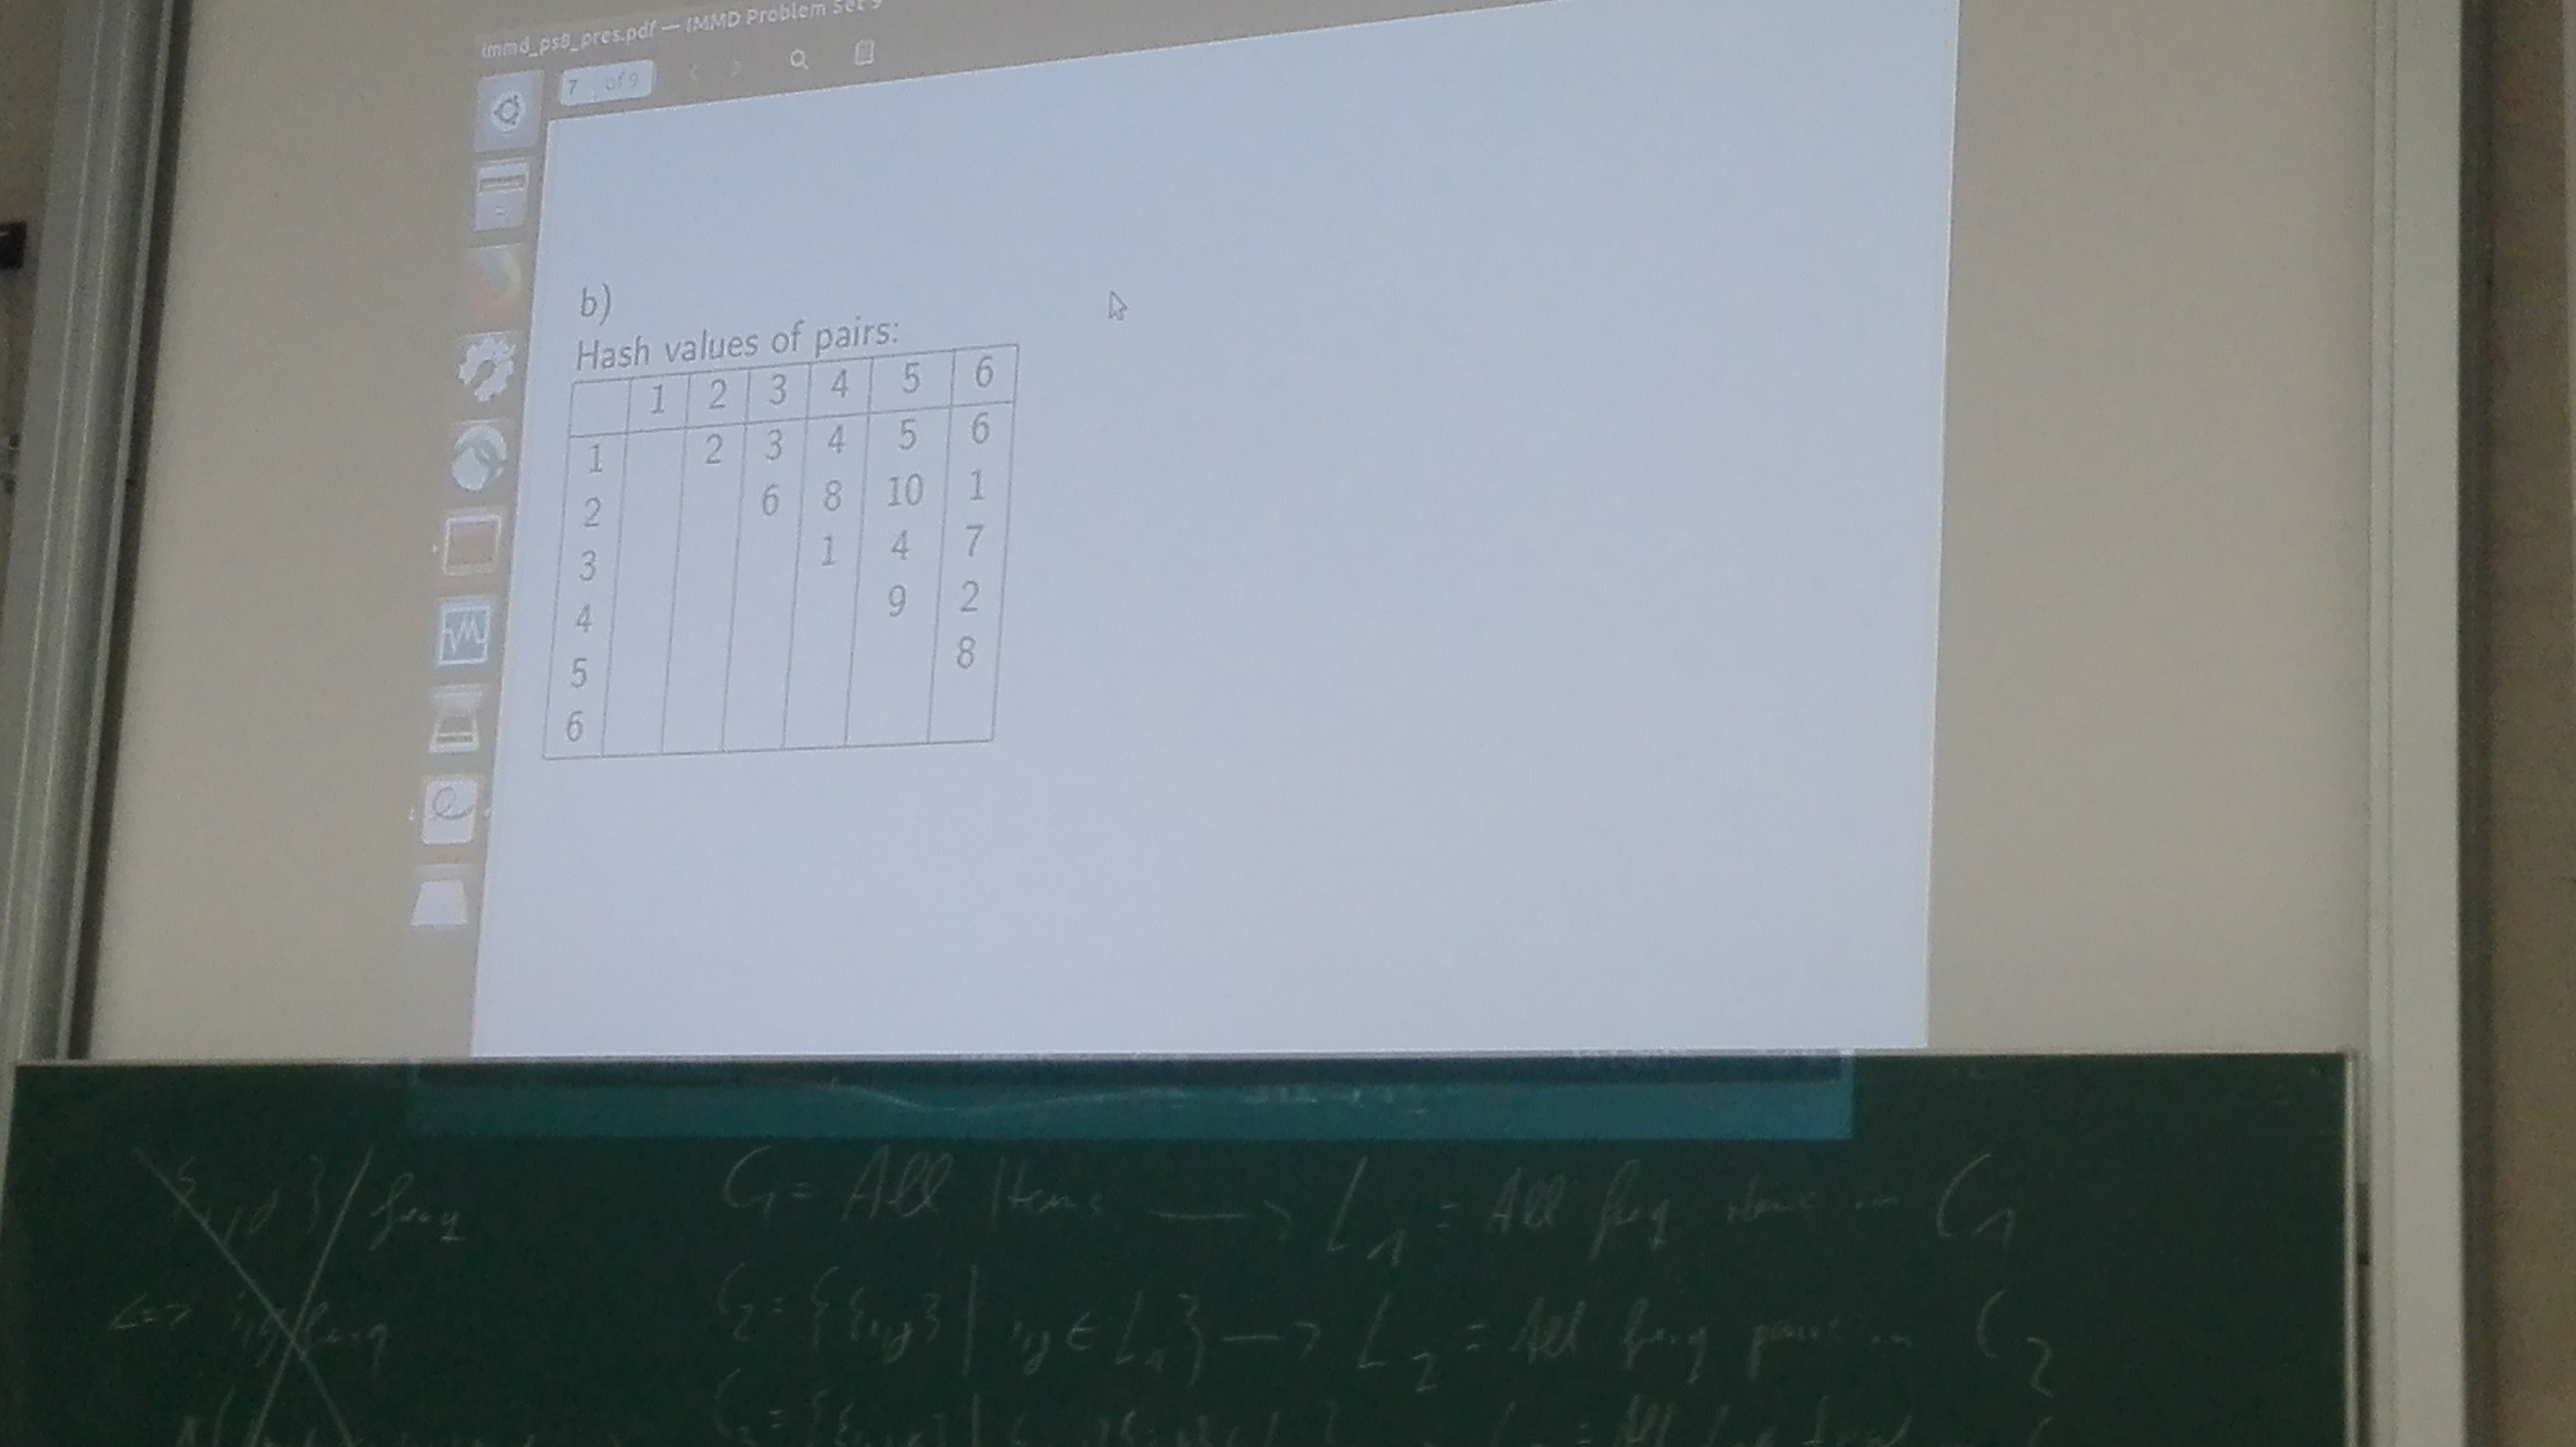 immd_ps8_pres.pdf — IMMD Problem Set 9
7 of 9
b)
Hash values of pairs:
1 2 3 4 5 6
1 2 3 4 5 6
2 6 8 10 1
3 1 4 7
4 9 2
5 8
6
freq
C1 = All Items → L1 = All freq items in C1
C2 = {{i,j} | i,j ∈ L1} → L2 = All freq pairs in C2
= All